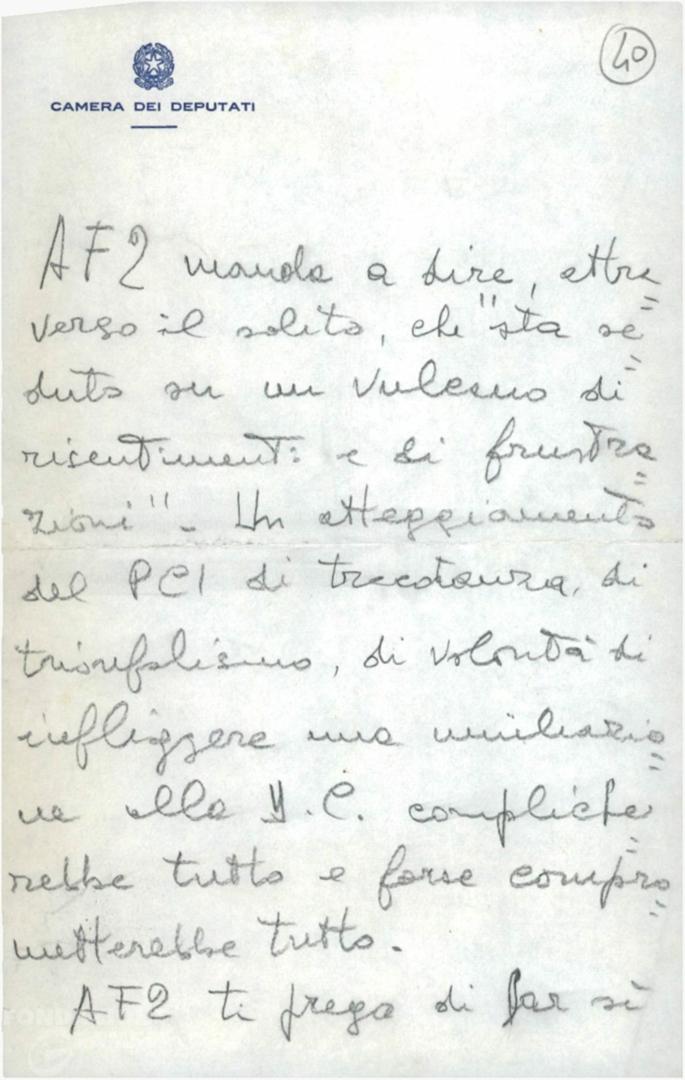 40
CAMERA DEI DEPUTATI
AF2 manda a dire, attra=
verso il solito, che "sta se=
duto su un vulcano di
risentimenti e di frustra=
zioni". Un atteggiamento
del PCI di tracotanza, di
trionfalismo, di volontà di
infliggere una umiliazio=
ne alla D.C. compliche=
rebbe tutto e forse compro=
metterebbe tutto.
AF2 ti prega di far sì